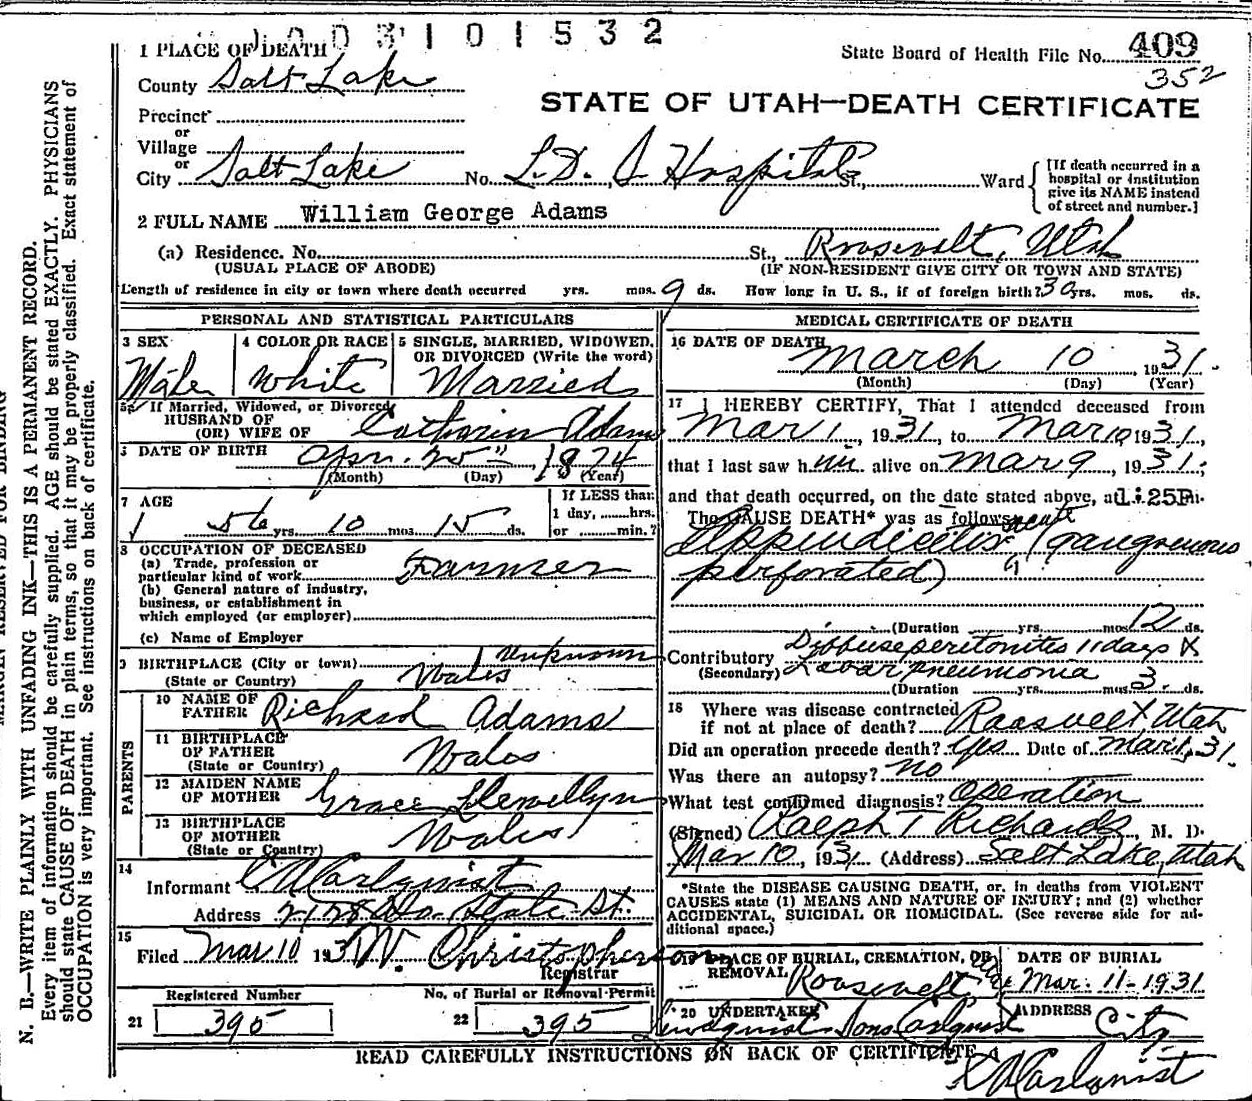 1 0 0 3 1 0 1 5 3 2
1 PLACE OF DEATH
State Board of Health File No. 409
352
County Salt Lake
STATE OF UTAH—DEATH CERTIFICATE
Precinct
or
Village
or
City Salt Lake No. L.D.S Hospital St., Ward
[If death occurred in a
hospital or institution
give its NAME instead
of street and number.]
2 FULL NAME William George Adams
(a) Residence. No. St., Roosevelt, Utah
(USUAL PLACE OF ABODE) (IF NON-RESIDENT GIVE CITY OR TOWN AND STATE)
Length of residence in city or town where death occurred yrs. mos. 9 ds. How long in U. S., if of foreign birth? 30 yrs. mos. ds.
PERSONAL AND STATISTICAL PARTICULARS
3 SEX Male
4 COLOR OR RACE White
5 SINGLE, MARRIED, WIDOWED,
OR DIVORCED (Write the word)
Married
5a If Married, Widowed, or Divorced
HUSBAND OF
(OR) WIFE OF Catharin Adams
DATE OF BIRTH Apr. 1874
(Month) (Day) (Year)
7 AGE
56 yrs. 10 mos. 15 ds.
If LESS than
1 day, hrs.
or min.?
8 OCCUPATION OF DECEASED
(a) Trade, profession or
particular kind of work Farmer
(b) General nature of industry,
business, or establishment in
which employed (or employer)
(c) Name of Employer
9 BIRTHPLACE (City or town) Unknown
(State or Country) Wales
PARENTS
10 NAME OF
FATHER Richard Adams
11 BIRTHPLACE
OF FATHER
(State or Country) Wales
12 MAIDEN NAME
OF MOTHER Grace Llewellyn
13 BIRTHPLACE
OF MOTHER
(State or Country) Wales
14
Informant C R Carlquist
Address So. State St.
15
Filed Mar 10 1931 W. Christopherson
Registrar
Registered Number
21 395
No. of Burial or Removal Permit
22 395
MEDICAL CERTIFICATE OF DEATH
16 DATE OF DEATH
March 10, 1931.
(Month) (Day) (Year)
17 I HEREBY CERTIFY, That I attended deceased from
Mar 1, 1931, to Mar 10 1931,
that I last saw him alive on Mar 9, 1931;
and that death occurred, on the date stated above, at 1:25P m.
The CAUSE DEATH* was as follows: acute
Appendicitis (gangrenous
perforated)
(Duration yrs. mos. 12 ds.
Contributory Diffuse peritonitis 11 days &
(Secondary) Lobar pneumonia
(Duration yrs. mos. 3. ds.
18 Where was disease contracted
if not at place of death? Roosvelt, Utah
Did an operation precede death? Yes Date of Mar 1, 31.
Was there an autopsy? no
What test confirmed diagnosis? Operation
(Signed) Ralph T Richards, M. D.
Mar 10, 1931 (Address) Salt Lake, Utah
*State the DISEASE CAUSING DEATH, or, in deaths from VIOLENT
CAUSES state (1) MEANS AND NATURE OF INJURY; and (2) whether
ACCIDENTAL, SUICIDAL OR HOMICIDAL. (See reverse side for ad-
ditional space.)
19 PLACE OF BURIAL, CREMATION, OR
REMOVAL Roosevelt Utah
DATE OF BURIAL
Mar. 11 - 1931
20 UNDERTAKER
Lindquist Sons Carlquist
ADDRESS City
READ CAREFULLY INSTRUCTIONS ON BACK OF CERTIFICATE
C R Carlquist
MARGIN RESERVED FOR BINDING
N. B.—WRITE PLAINLY WITH UNFADING INK—THIS IS A PERMANENT RECORD.
Every item of information should be carefully supplied. AGE should be stated EXACTLY. PHYSICIANS
should state CAUSE OF DEATH in plain terms, so that it may be properly classified. Exact statement of
OCCUPATION is very important. See instructions on back of certificate.